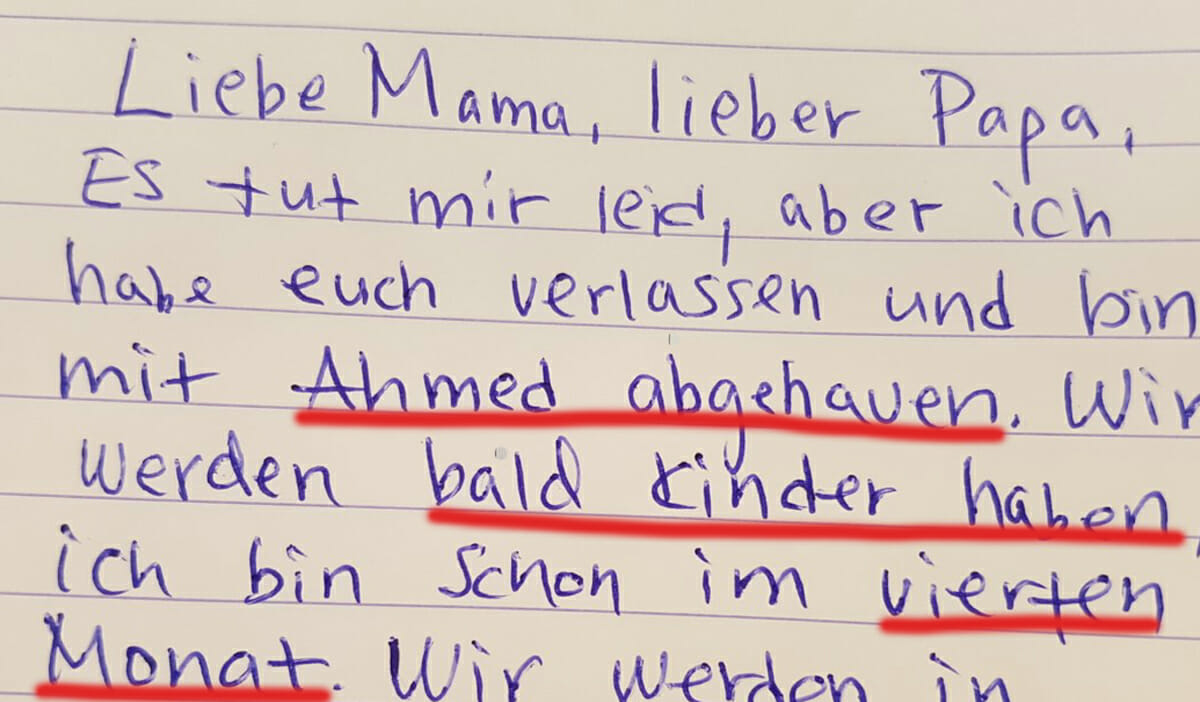 Liebe Mama, lieber Papa,
Es tut mir leid, aber ich
habe euch verlassen und bin
mit Ahmed abgehauen. Wir
werden bald Kinder haben,
ich bin schon im vierten
Monat. Wir werden in